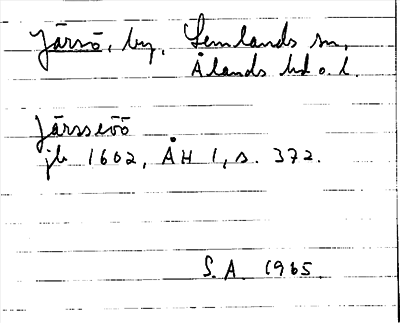 Järsö, by, Lemlands sn,
Ålands hd o. l.
Järssröö
jb 1602, ÅH 1, s. 372.
S.A 1965.